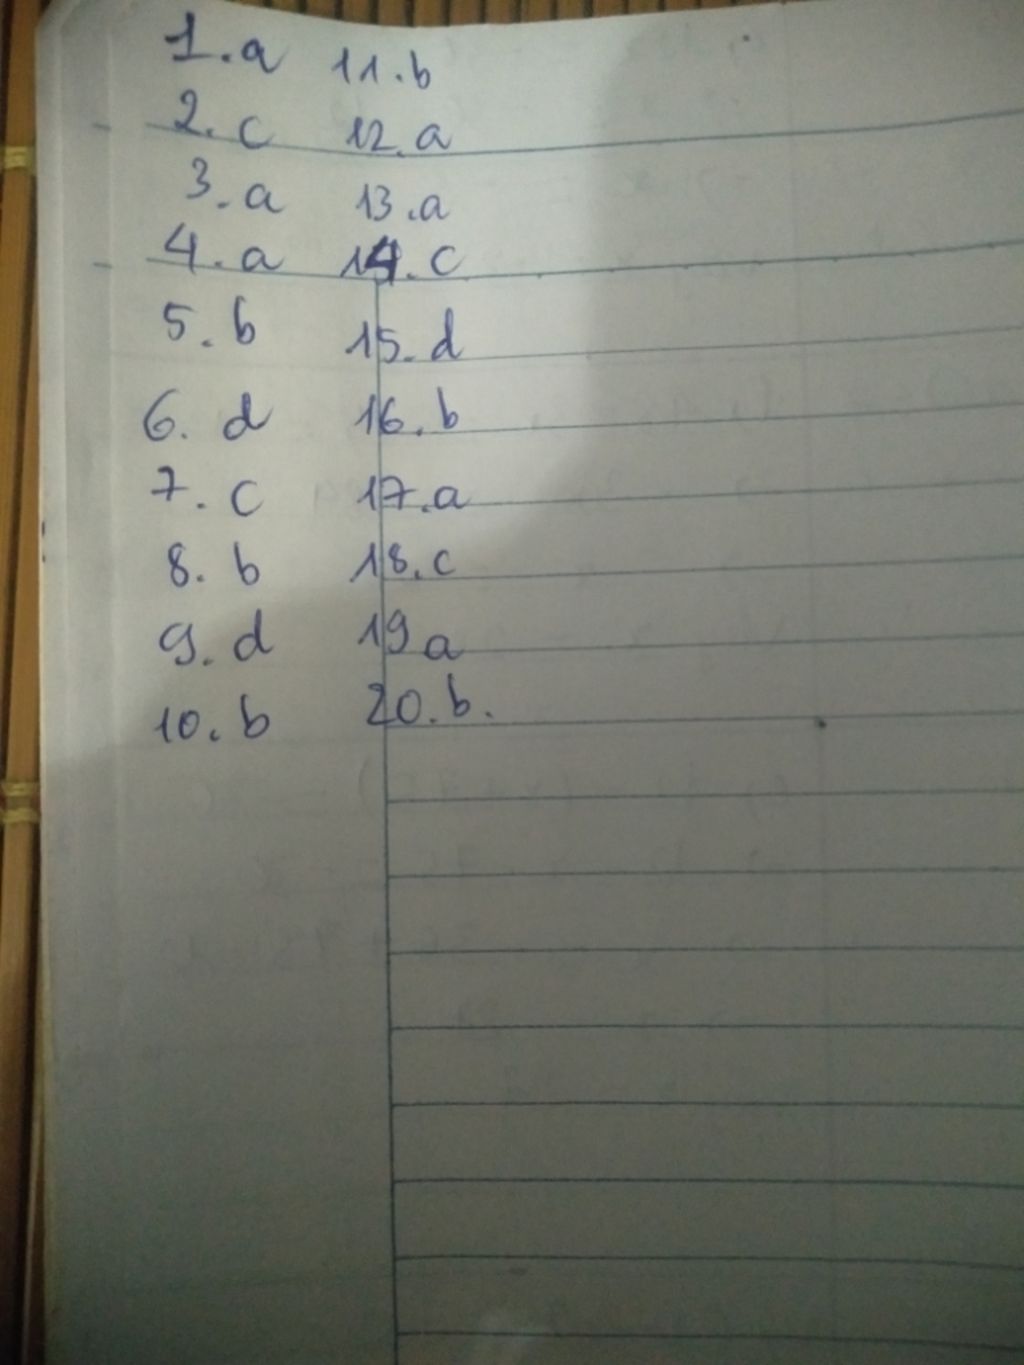 1.a 11.b
2.c 12.a
3.a 13.a
4.a 14.c
5.b 15.d
6.d 16.b
7.c 17.a
8.b 18.c
9.d 19 a
10.b 20.b.